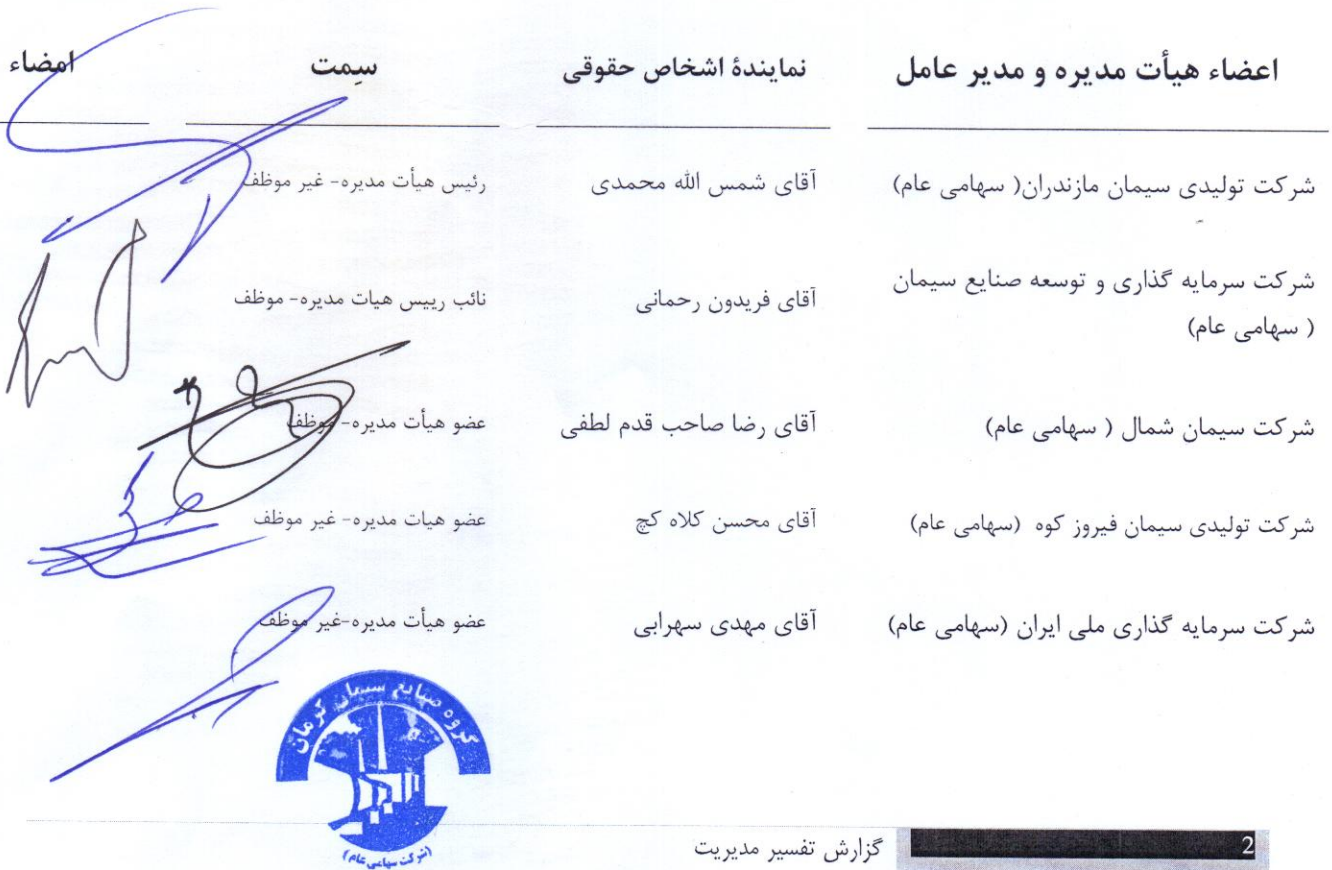 اعضاء هیأت مدیره و مدیر عامل	نمایندۀ اشخاص حقوقی	سِمت	امضاء
شرکت تولیدی سیمان مازندران( سهامی عام)	آقای شمس الله محمدی	رئیس هیأت مدیره- غیر موظف
شرکت سرمایه گذاری و توسعه صنایع سیمان	آقای فریدون رحمانی	نائب رییس هیات مدیره- موظف
( سهامی عام)
شرکت سیمان شمال ( سهامی عام)	آقای رضا صاحب قدم لطفی	عضو هیأت مدیره- موظف
شرکت تولیدی سیمان فیروز کوه (سهامی عام)	آقای محسن کلاه کچ	عضو هیات مدیره- غیر موظف
شرکت سرمایه گذاری ملی ایران (سهامی عام)	آقای مهدی سهرابی	عضو هیأت مدیره-غیر موظف
گروه صنایع سیمان کرمان
(شرکت سهامی عام)
2	گزارش تفسیر مدیریت